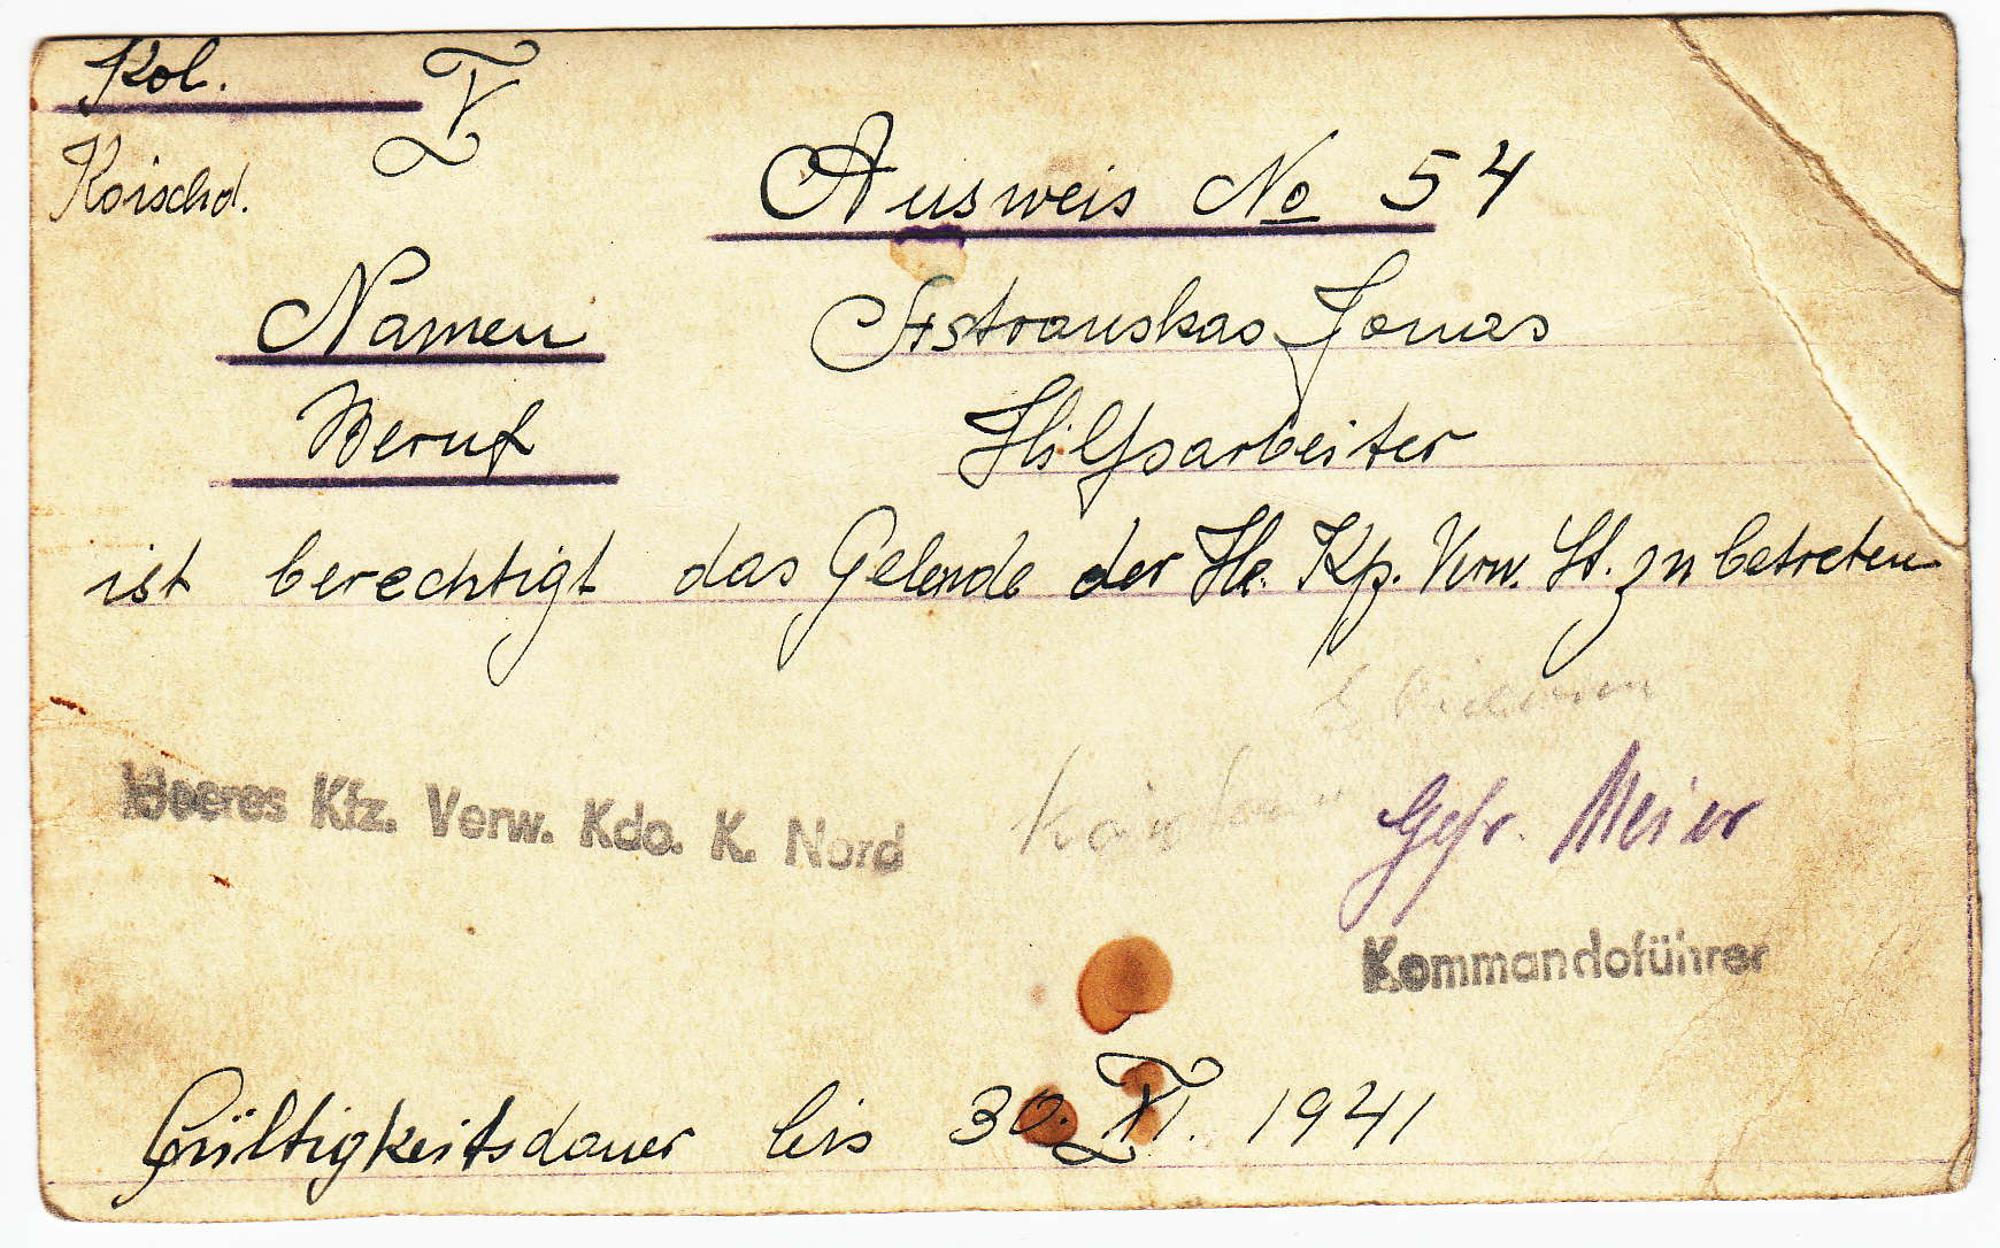 Kol. I
Koischd.
Ausweis No 54
Namen Astrauskas Jonas
Beruf Hilfsarbeiter
ist berechtigt das Gelende der He. Kfz. Verw. St. zu betreten
Heeres Kfz. Verw. Kdo. K. Nord
Gefr. Meier
Kommandoführer
Gültigkeitsdauer bis 30. XI. 1941